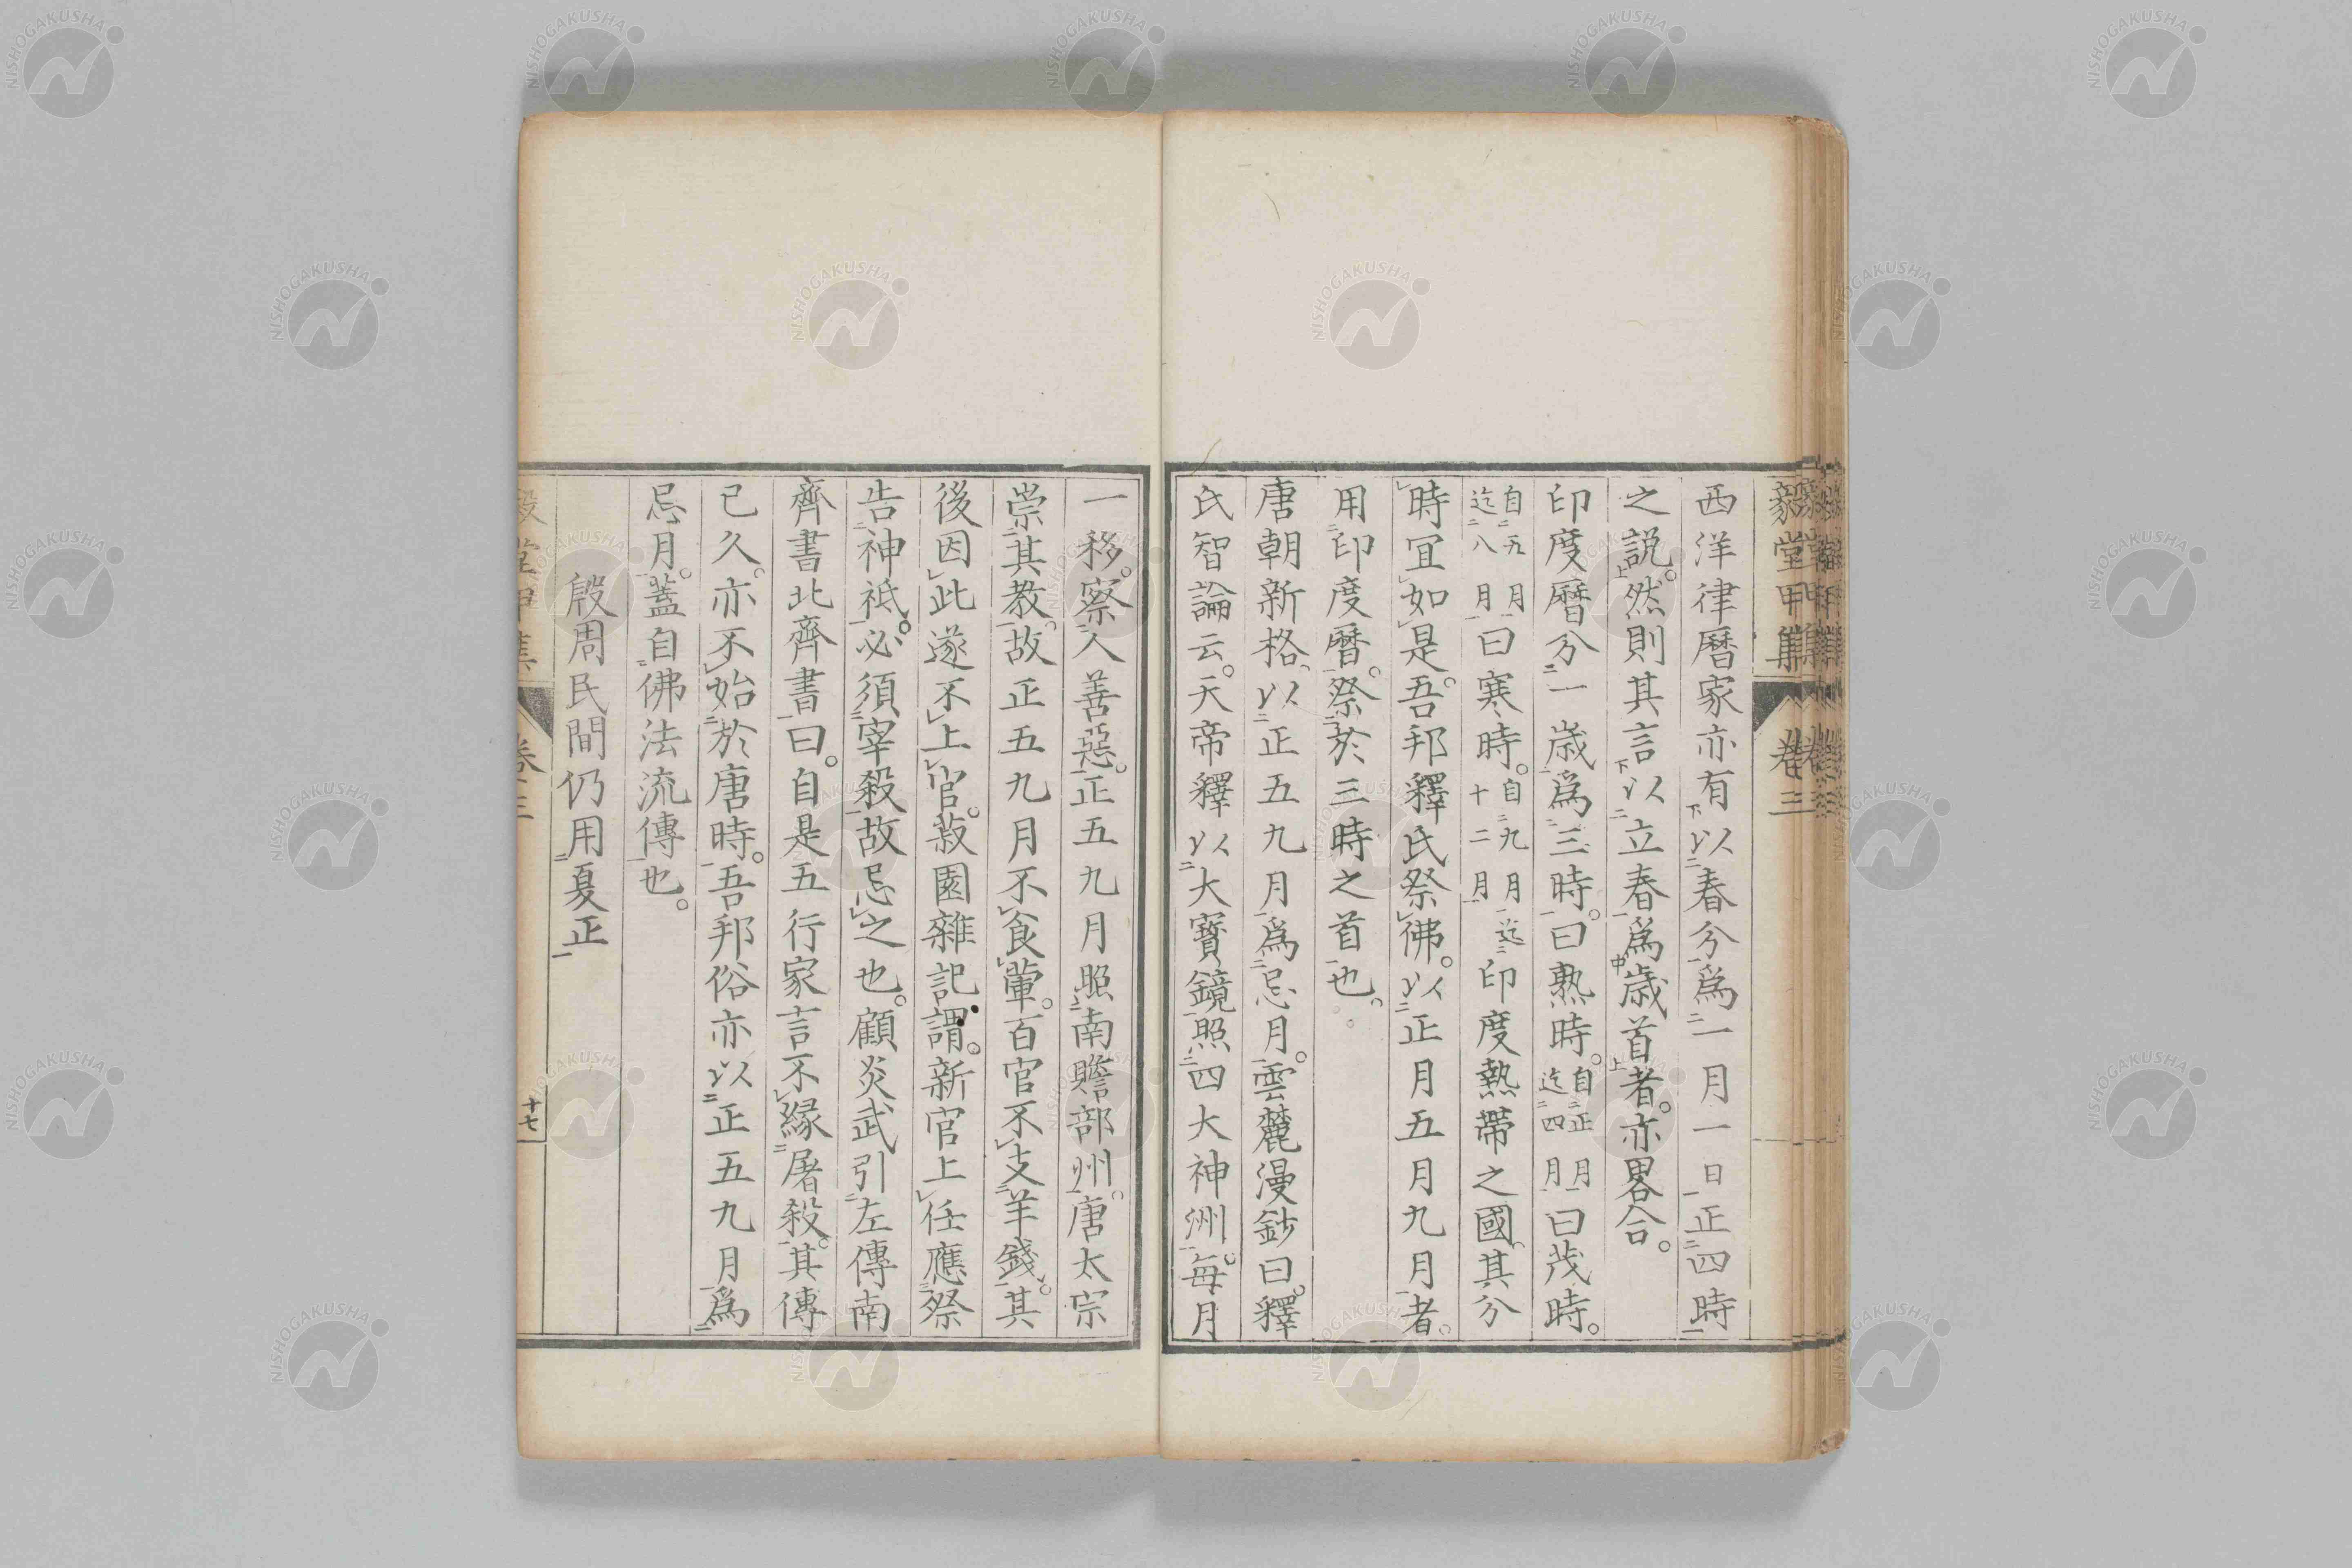 毅堂甲集 卷三
西洋律曆家亦有以春分爲一月一日正四時
之説。然則其言以立春爲歳首者。亦畧合。
印度曆分一歳爲三時。曰熟時。自正月迄四月曰茂時。
自五月迄八月曰寒時。自九月迄十二月印度熱帶之國。其分
時冝如是。吾邦釋氏祭佛。以正月五月九月者。
用印度曆。祭於三時之首也。
唐朝新格、以正五九月爲忌月。雲麓漫鈔曰。釋
氏智論云。天帝釋以大寳鏡照四大神洲。每月
一移。察人善惡。正五九月照南贍部州。唐太宗
崇其教。故正五九月不食葷。百官不支羊錢。其
後因此遂不上官。菽園雜記謂。新官上任應祭
告神祗。必須宰殺。故忌之也。顧炎武引左傳南
齊書北齊書曰。自是五行家言不縁屠殺。其傳
已久。亦不始於唐時。吾邦俗亦以正五九月爲
忌月。蓋自佛法流傳也。
殷周民間仍用夏正
毅堂甲集 卷三 十七
NISHOGAKUSHA